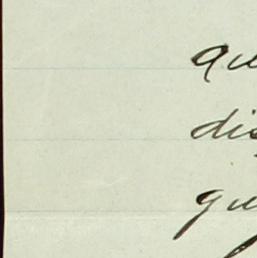 qu
dis
gu